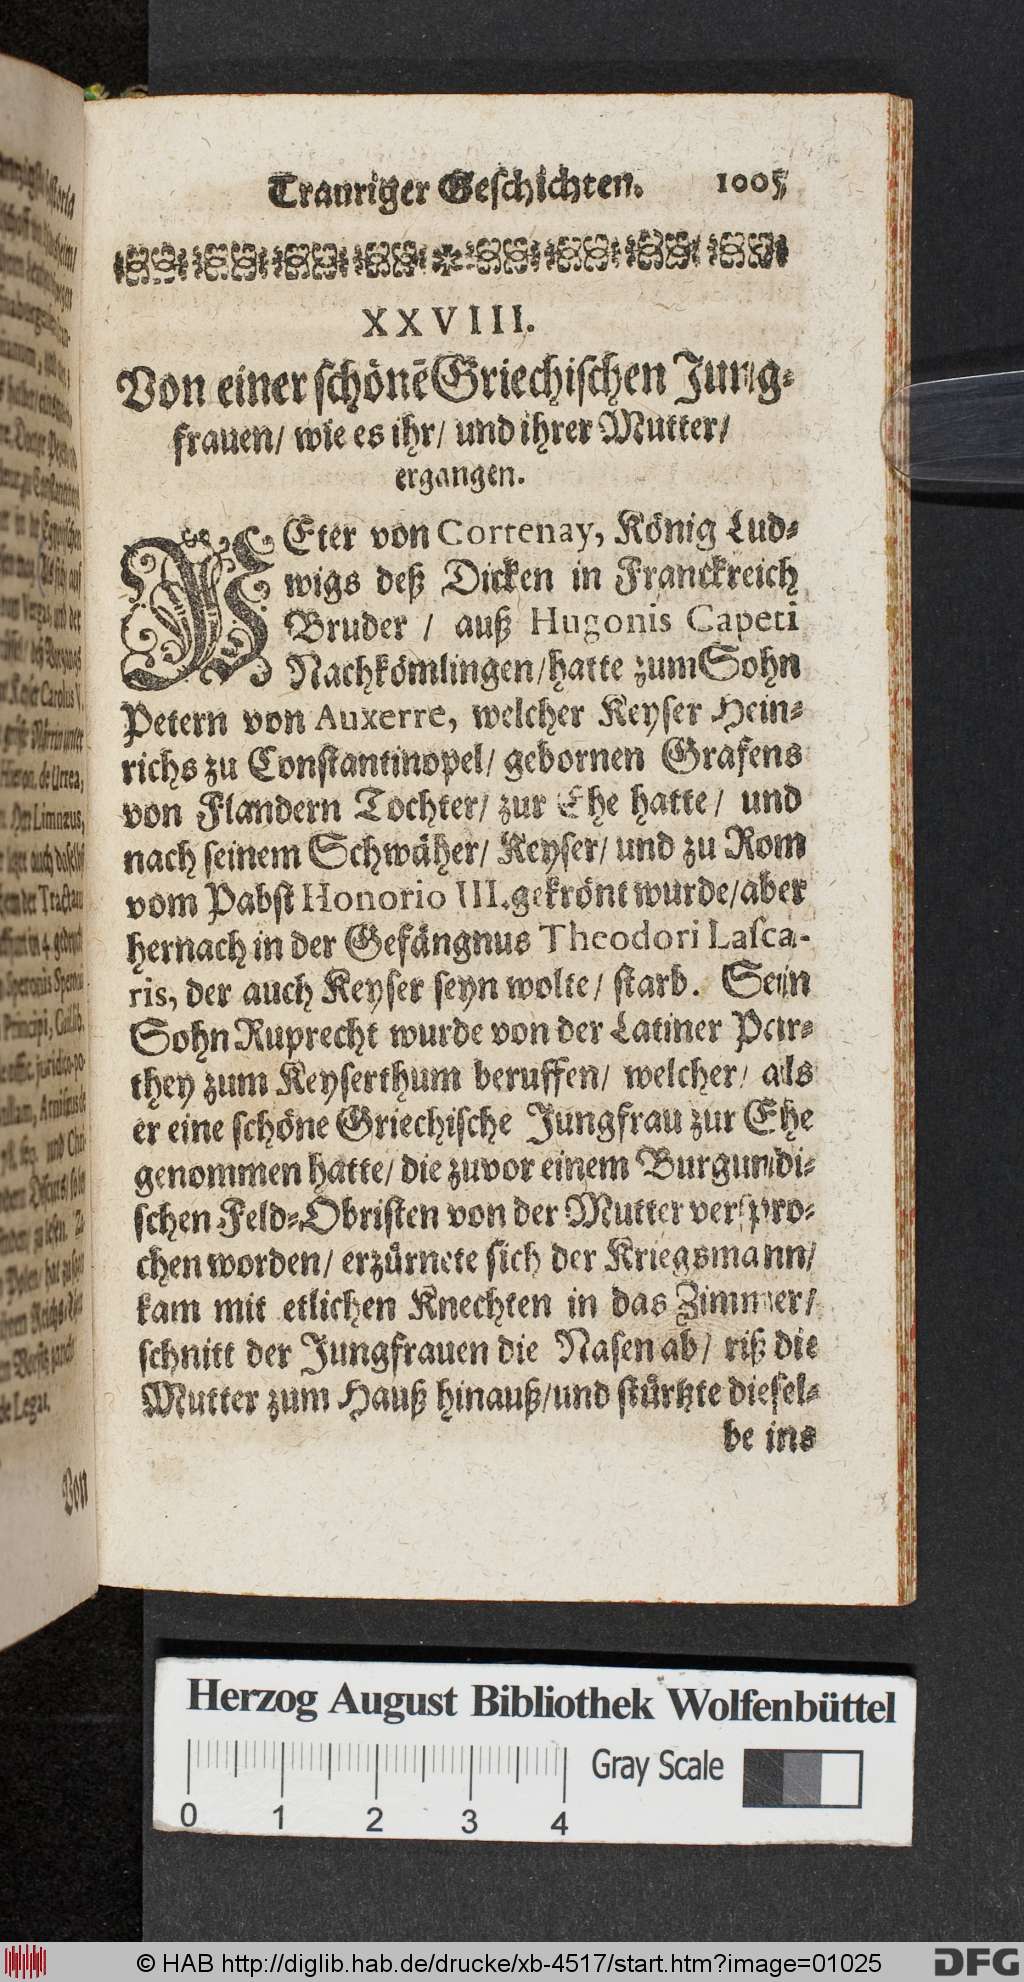 Trauriger Geſchichten. 1005
XXVIII.
Von einer ſchönē Griechiſchen Jung-
frauen/ wie es ihr/ und ihrer Mutter/
ergangen.
PEter von Cortenay, König Lud-
wigs deß Dicken in Franckreich
Bruder / auß Hugonis Capeti
Nachkömlingen/hatte zum Sohn
Petern von Auxerre, welcher Keyſer Hein-
richs zu Conſtantinopel/ gebornen Grafens
von Flandern Tochter/ zur Ehe hatte/ und
nach ſeinem Schwäher/ Keyſer/ und zu Rom
vom Pabſt Honorio III. gekrönt wurde/aber
hernach in der Gefängnus Theodori Laſca-
ris, der auch Keyſer ſeyn wolte/ ſtarb. Sein
Sohn Ruprecht wurde von der Latiner Par-
they zum Keyſerthum beruffen/ welcher/ als
er eine ſchöne Griechiſche Jungfrau zur Ehe
genommen hatte/ die zuvor einem Burgundi-
ſchen Feld-Obriſten von der Mutter verſpro-
chen worden/ erzürnete ſich der Kriegsmann/
kam mit etlichen Knechten in das Zimmer/
ſchnitt der Jungfrauen die Naſen ab/ riß die
Mutter zum Hauß hinauß/und ſtürtzte dieſel-
be ins
Von
Herzog August Bibliothek Wolfenbüttel
Gray Scale
0 1 2 3 4
© HAB http://diglib.hab.de/drucke/xb-4517/start.htm?image=01025
DFG